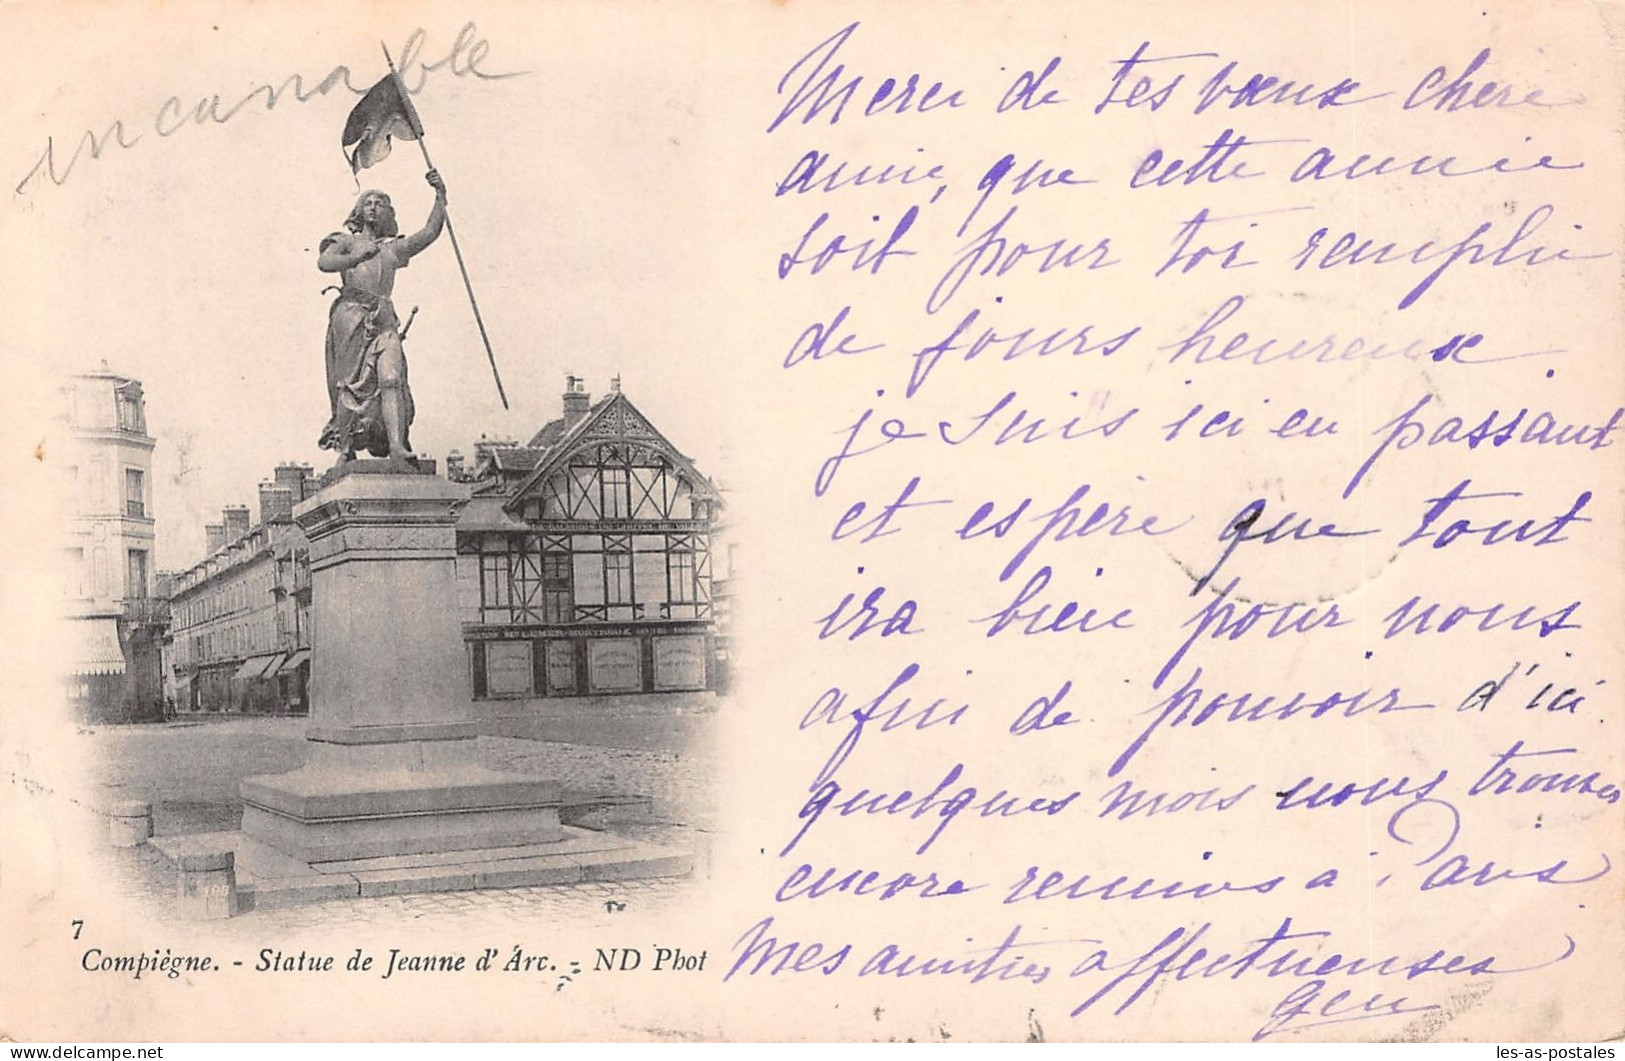 incunable
Merci de tes vœux chère
amie, que cette année
soit pour toi remplie
de jours heureux.
je suis ici en passant
et espère que tout
ira bien pour nous
afin de pouvoir d'ici
quelques mois nous trouver
encore réunies à Paris
Mes amitiés affectueuses
Gen
7
Compiègne. - Statue de Jeanne d'Arc. - ND Phot
les-as-postales